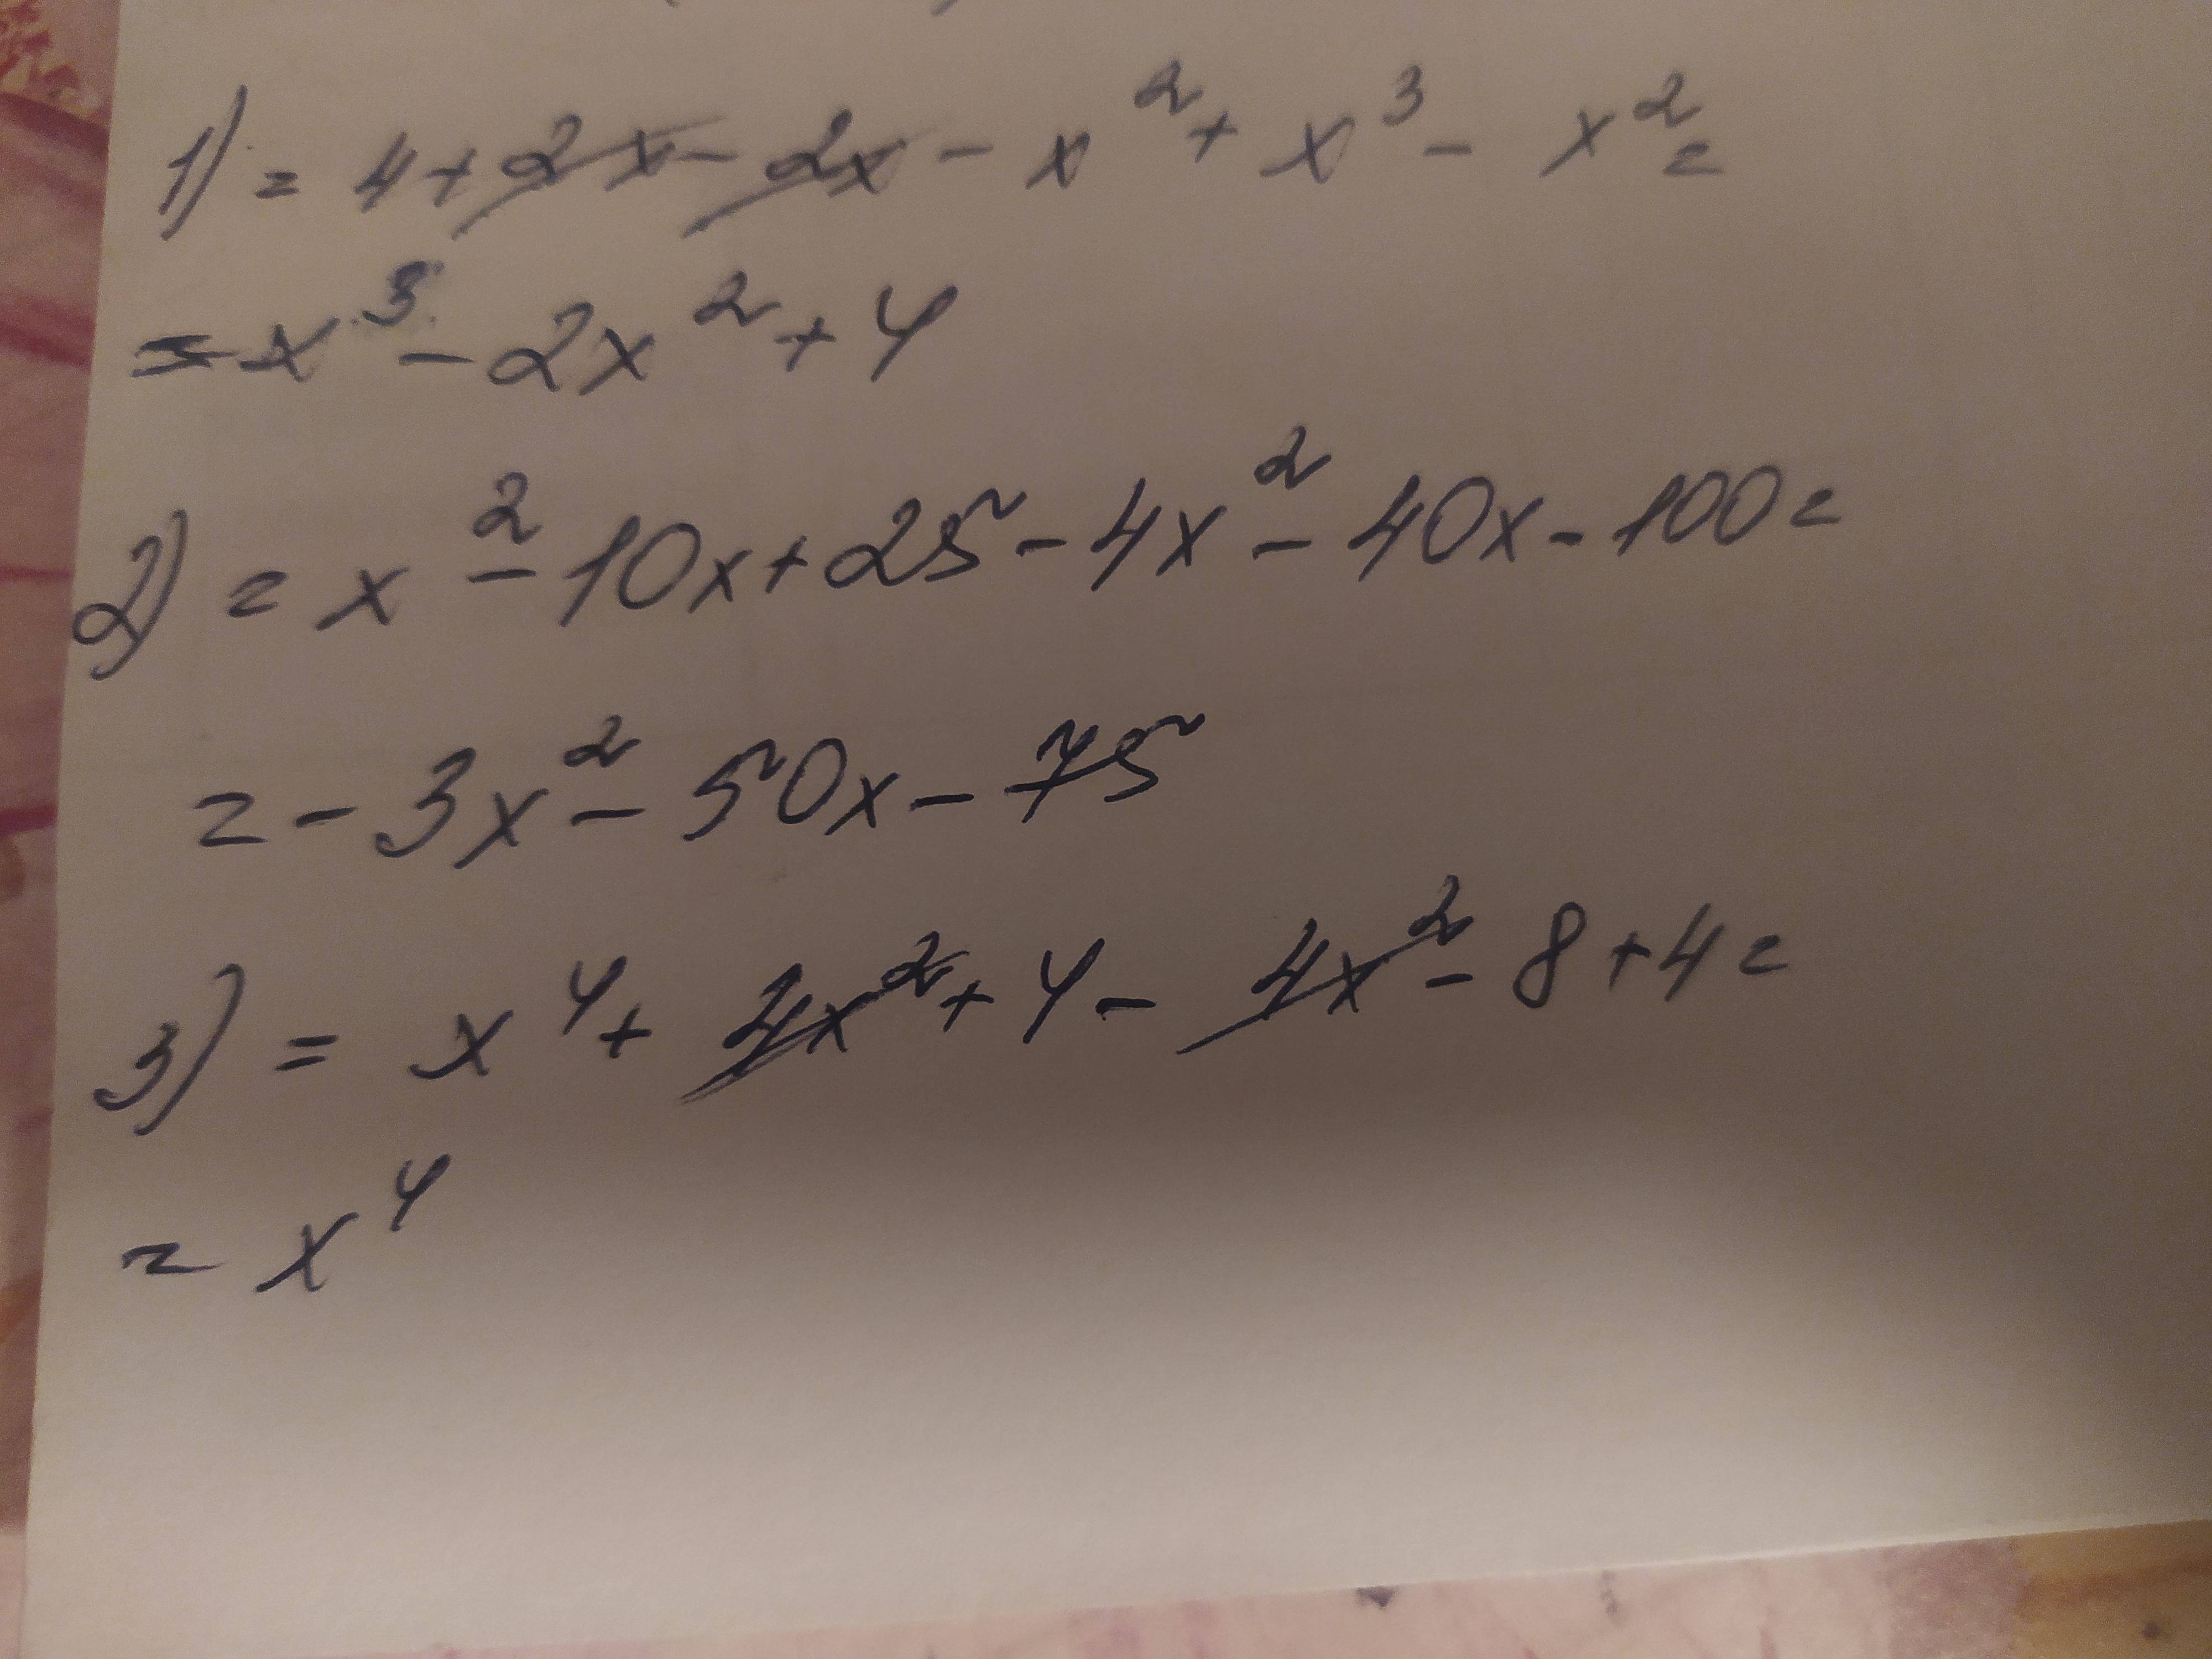 1) = 4 + 2x - 2x - x² + x³ - x² =
= x³ - 2x² + 4
2) = x² - 10x + 25 - 4x² - 40x - 100 =
= - 3x² - 50x - 75
3) = x⁴ + 4x² + 4 - 4x² - 8 + 4 =
= x⁴